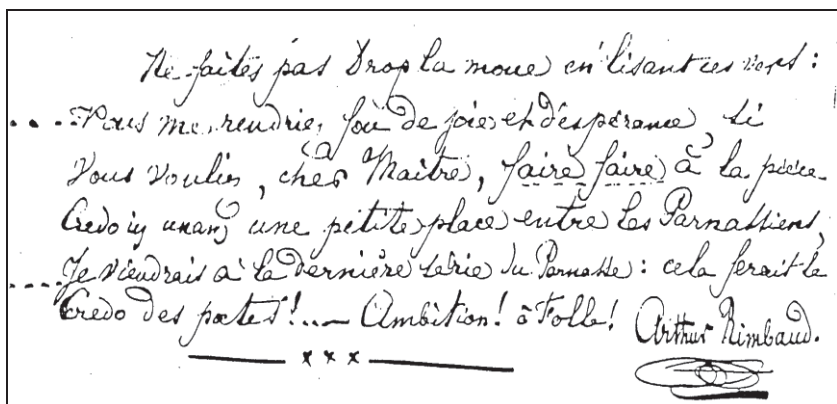 Ne faites pas trop la moue en lisant ces vers :
.... Vous me rendriez fou de joie et d'espérance, si
Vous vouliez, cher Maître, faire faire à la pièce
Credo in unam, une petite place entre les Parnassiens,
.... Je viendrais à la dernière série du Parnasse : cela ferait le
Credo des poètes !... — Ambition ! ô Folle !
Arthur Rimbaud.
x x x